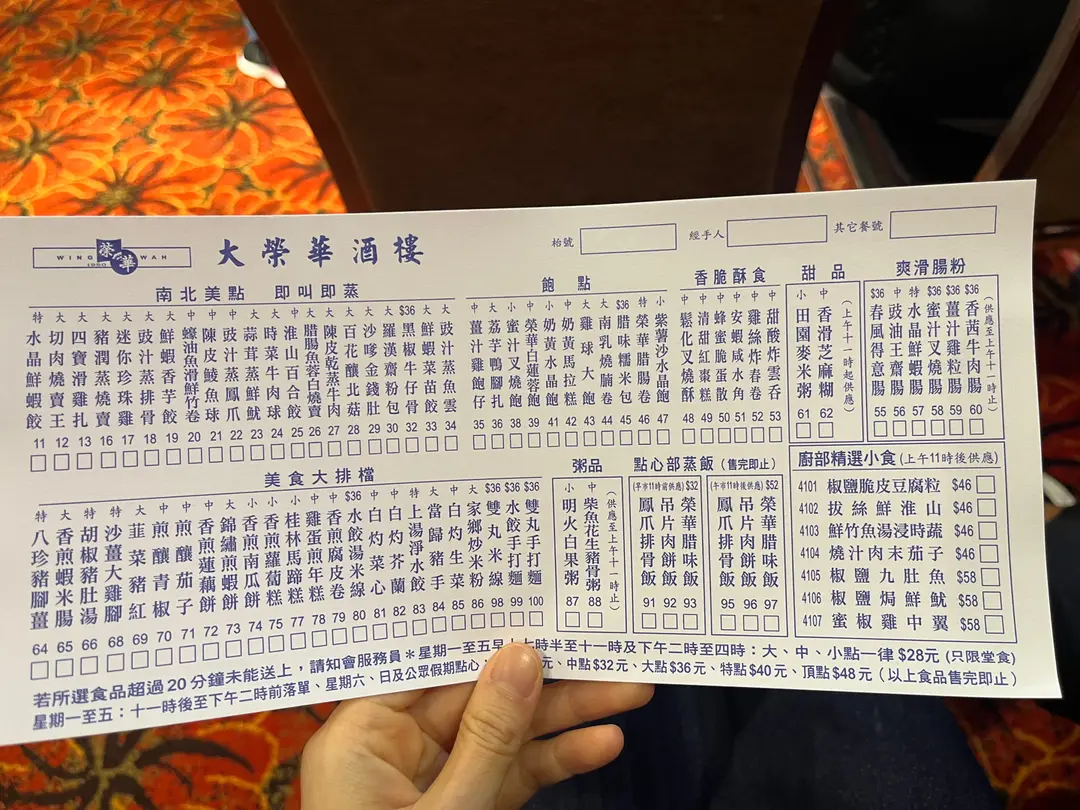 WING WAH
1950
榮華
大榮華酒樓
枱號
經手人
其它餐號
南北美點 即叫即蒸
特 水晶鮮蝦餃 11
大 切肉燒賣王 12
四寶滑雞扎 13
豬潤蒸燒賣 16
迷你珍珠雞 17
豉汁蒸排骨 18
鮮蝦香芋角 19
蠔油魚滑鮮竹卷 20
陳皮鯪魚球 21
豉汁蒸鳳爪 22
蒜茸蒸鮮魷 23
時菜牛肉球 24
淮山百合餃 25
臘腸魚蓉白燒賣 26
陳皮乾蒸牛肉 27
百花釀北菇 28
沙嗲金錢肚 29
羅漢齋粉包 30
$36 黑椒牛仔骨 32
大 鮮蝦菜苗餃 33
大 豉汁蒸魚雲 34
飽點
中 薑汁雞飽仔 35
大 荔芋鴨腳扎 36
小 蜜汁叉燒飽 38
中 榮華白蓮蓉飽 39
小 奶黃水晶飽 41
中 奶黃馬拉糕 42
大 雞球大飽 43
大 南乳燒腩卷 44
$36 腊味糯米包 45
特 榮華腊腸卷 46
小 紫薯沙水晶飽 47
香脆酥食
中 鬆化叉燒酥 48
中 清甜紅棗糕 49
中 蜂蜜脆蛋散 50
中 安蝦咸水角 51
中 雞絲炸春卷 52
中 甜酸炸雲吞 53
甜品
小 田園麥米粥 61
中 香滑芝麻糊 62
(上午十一時起供應)
爽滑腸粉
$36 春風得意腸 55
中 豉油王齋腸 56
特 水晶鮮蝦腸 57
$36 蜜汁叉燒腸 58
$36 薑汁雞粒腸 59
$36 香茜牛肉腸 60
(供應至上午十一時止)
美食大排檔
特 八珍豬腳薑 64
大 香煎蝦米腸 65
特 胡椒豬肚湯 66
沙薑大雞腳 68
韮菜豬紅 69
中 煎釀青椒 70
中 煎釀茄子 71
中 香煎蓮藕餅 72
中 錦繡煎蝦餅 73
小 香煎南瓜餅 74
小 香煎蘿蔔糕 75
小 桂林馬蹄糕 76
雞蛋煎年糕 77
中 香煎腐皮卷 78
$36 水餃湯米線 79
大 白灼菜心 80
大 白灼芥蘭 82
特 上湯淨水餃 83
大 當歸豬手 84
中 白灼生菜 85
大 家鄉炒米粉 86
$36 雙丸米線 98
$36 水餃手打麵 99
$36 雙丸手打麵 100
粥品
小 明火白果粥 87
中 柴魚花生豬骨粥 88
(供應至上午十一時止)
點心部蒸飯 (售完即止)
(早市11時前供應) $32
鳳爪排骨飯 91
吊片肉餅飯 92
榮華腊味飯 93
(午市11時後供應) $52
鳳爪排骨飯 95
吊片肉餅飯 96
榮華腊味飯 97
廚部精選小食 (上午11時後供應)
4101 椒鹽脆皮豆腐粒 $46
4102 拔絲鮮淮山 $46
4103 鮮竹魚湯浸時蔬 $46
4104 燒汁肉末茄子 $46
4105 椒鹽九肚魚 $58
4106 椒鹽焗鮮魷 $58
4107 蜜椒雞中翼 $58
若所選食品超過20分鐘未能送上，請知會服務員＊星期一至五早上七時半至十一時及下午二時至四時：大、中、小點一律$28元 (只限堂食)
星期一至五：十一時後至下午二時前落單、星期六、日及公眾假期點心：元、中點$32元、大點$36元、特點$40元、頂點$48元 (以上食品售完即止)